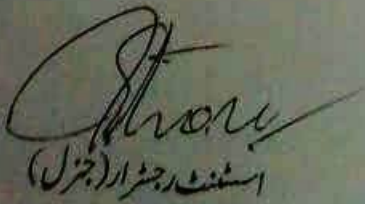 اسسٹنٹ رجسٹرار (جنرل)